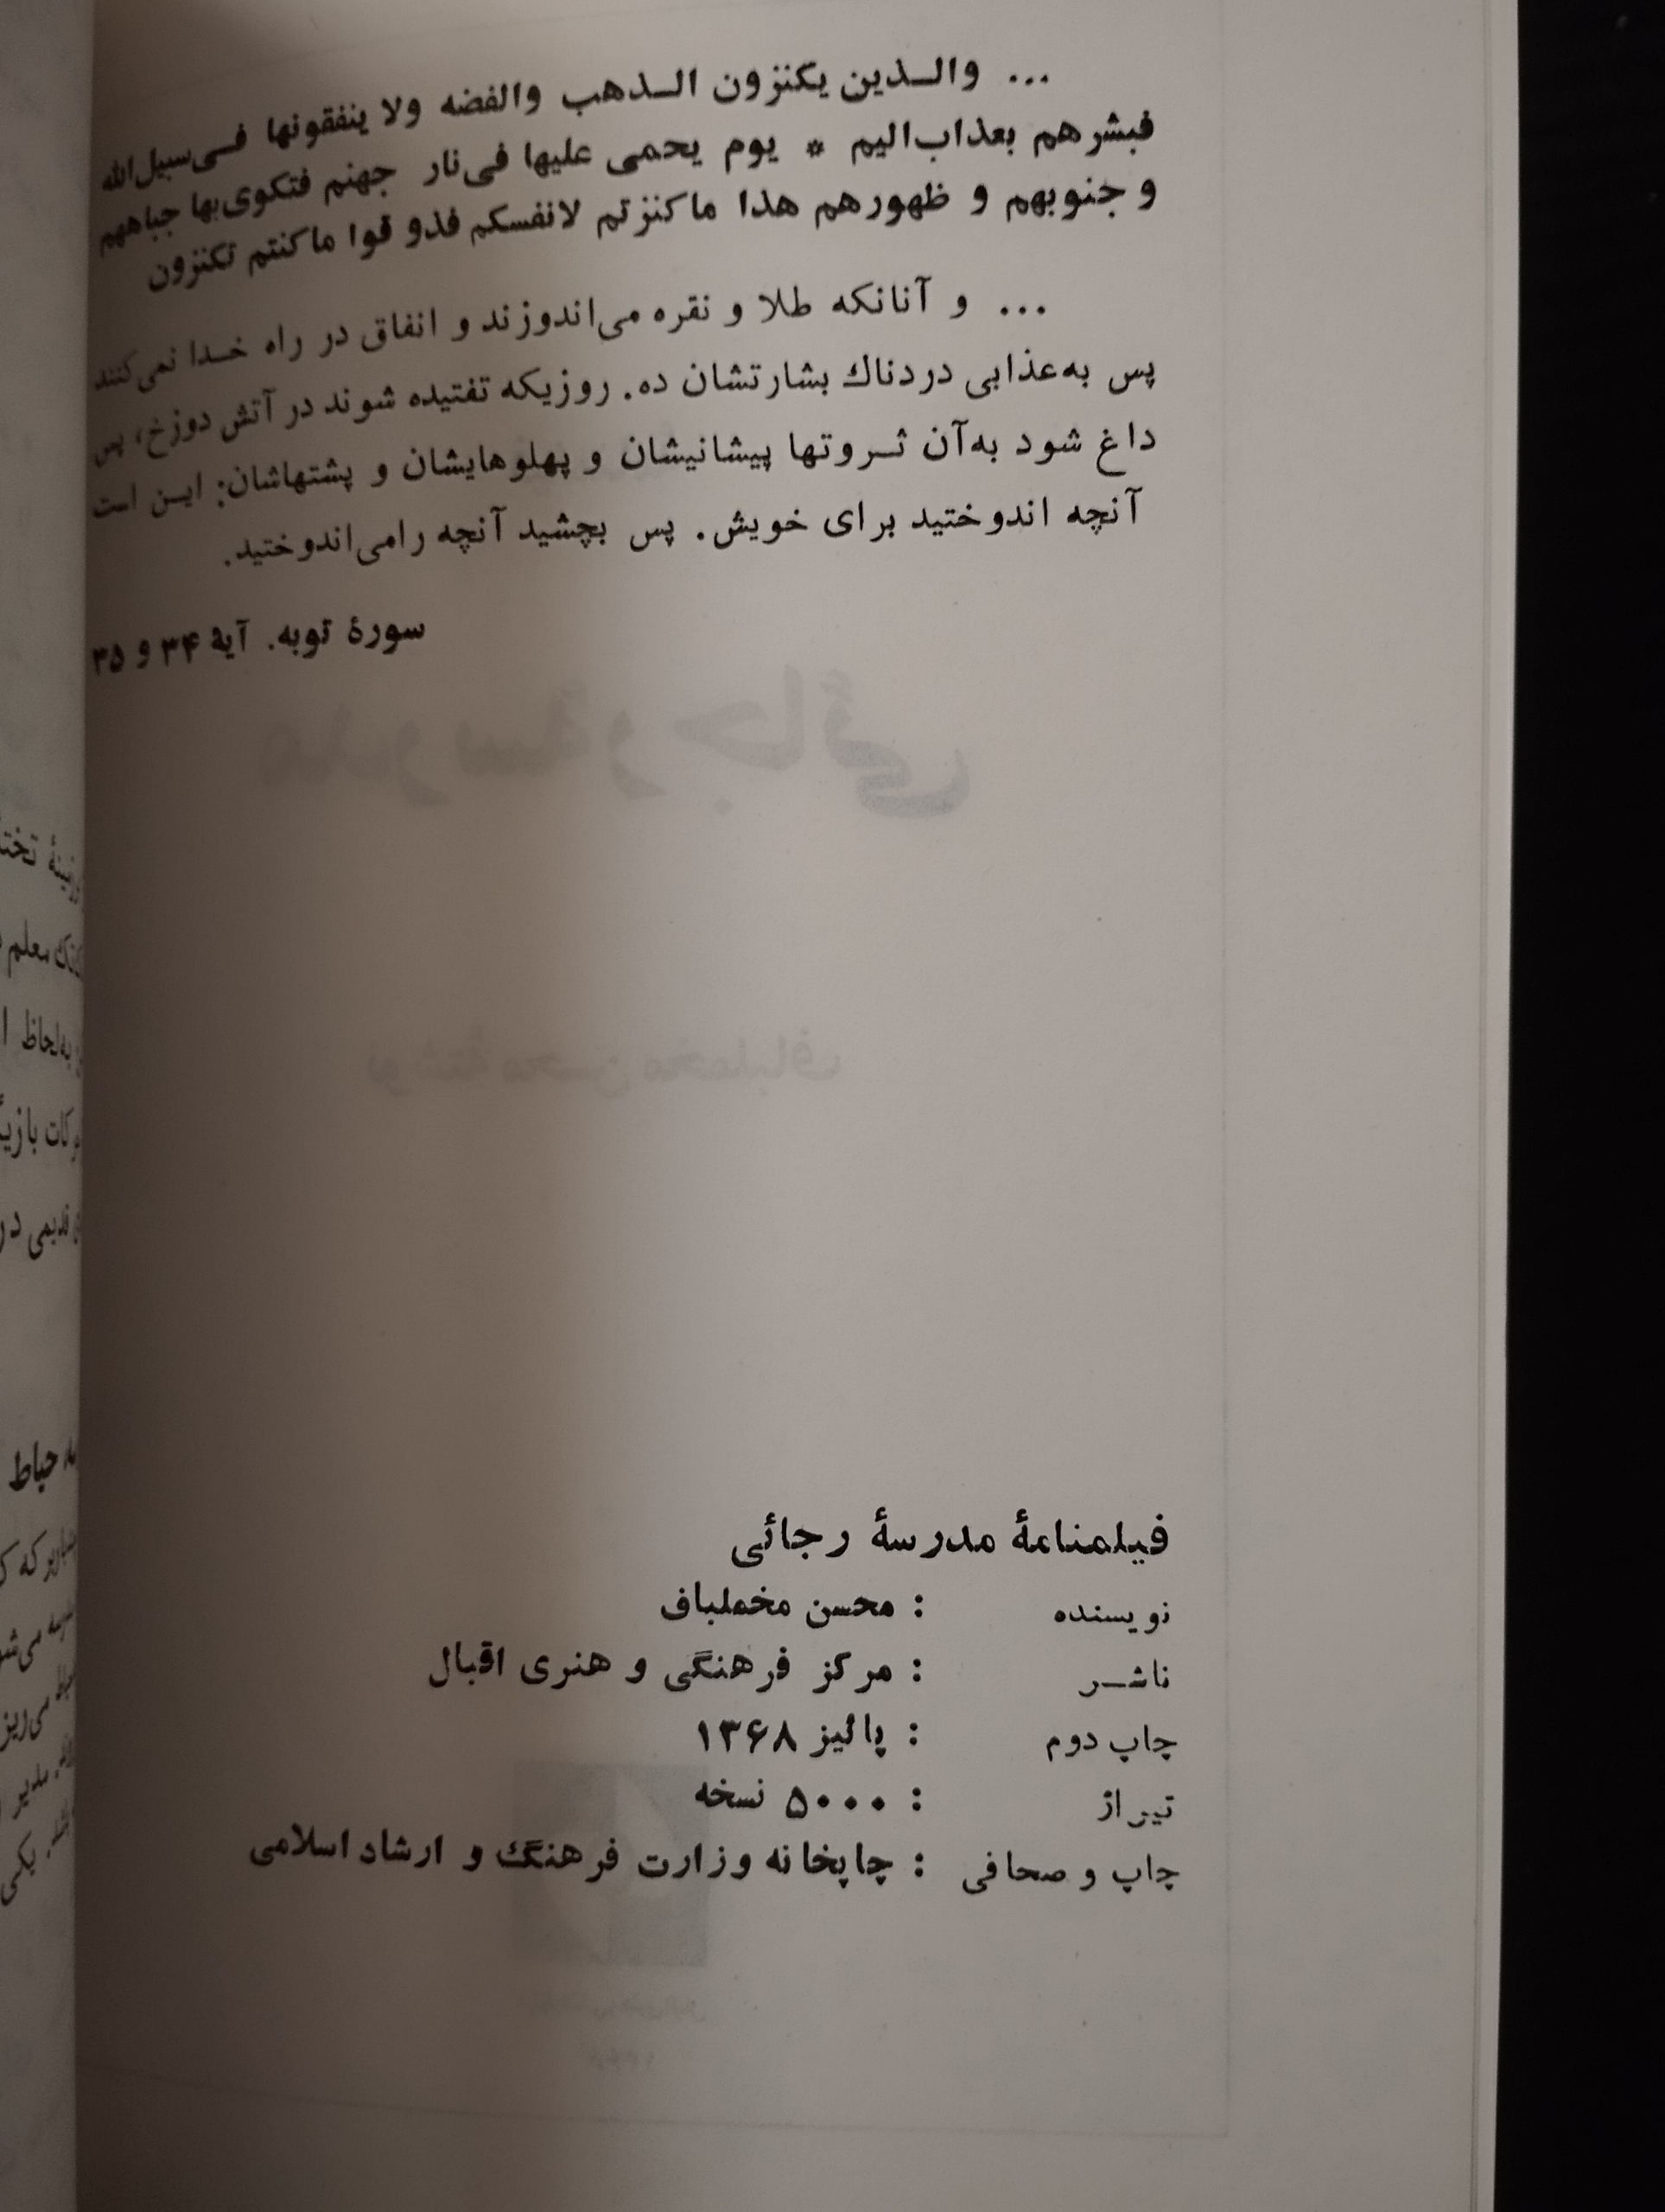 ... والـدین یکنزون الـذهب والفضه ولا ینفقونها فـی‌سبیل‌الله
فبشرهم بعذاب‌الیم * یوم یحمی علیها فی‌نار جهنم فتکوی‌بها جباههم
و جنوبهم و ظهورهم هذا ماکنزتم لانفسکم فذو قوا ماکنتم تکنزون
... و آنانکه طلا و نقره می‌اندوزند و انفاق در راه خـدا نمی‌کنند
پس به‌عذابی دردناك بشارتشان ده. روزیکه تفتیده شوند در آتش دوزخ، پس
داغ شود به‌آن ثـروتها پیشانیشان و پهلوهایشان و پشتهاشان: ایـن است
آنچه اندوختید برای خویش. پس بچشید آنچه رامی‌اندوختید.
سورهٔ توبه. آیهٔ ۳۴ و ۳۵
فیلمنامهٔ مدرسهٔ رجائی
نویسنده : محسن مخملباف
ناشـر : مرکز فرهنگی و هنری اقبال
چاپ دوم : پائیز ۱۳۶۸
تیراژ : ۵۰۰۰ نسخه
چاپ و صحافی : چاپخانه وزارت فرهنگ و ارشاد اسلامی
تخته
معلم
به‌لحاظ
قدیمی در
حیاط